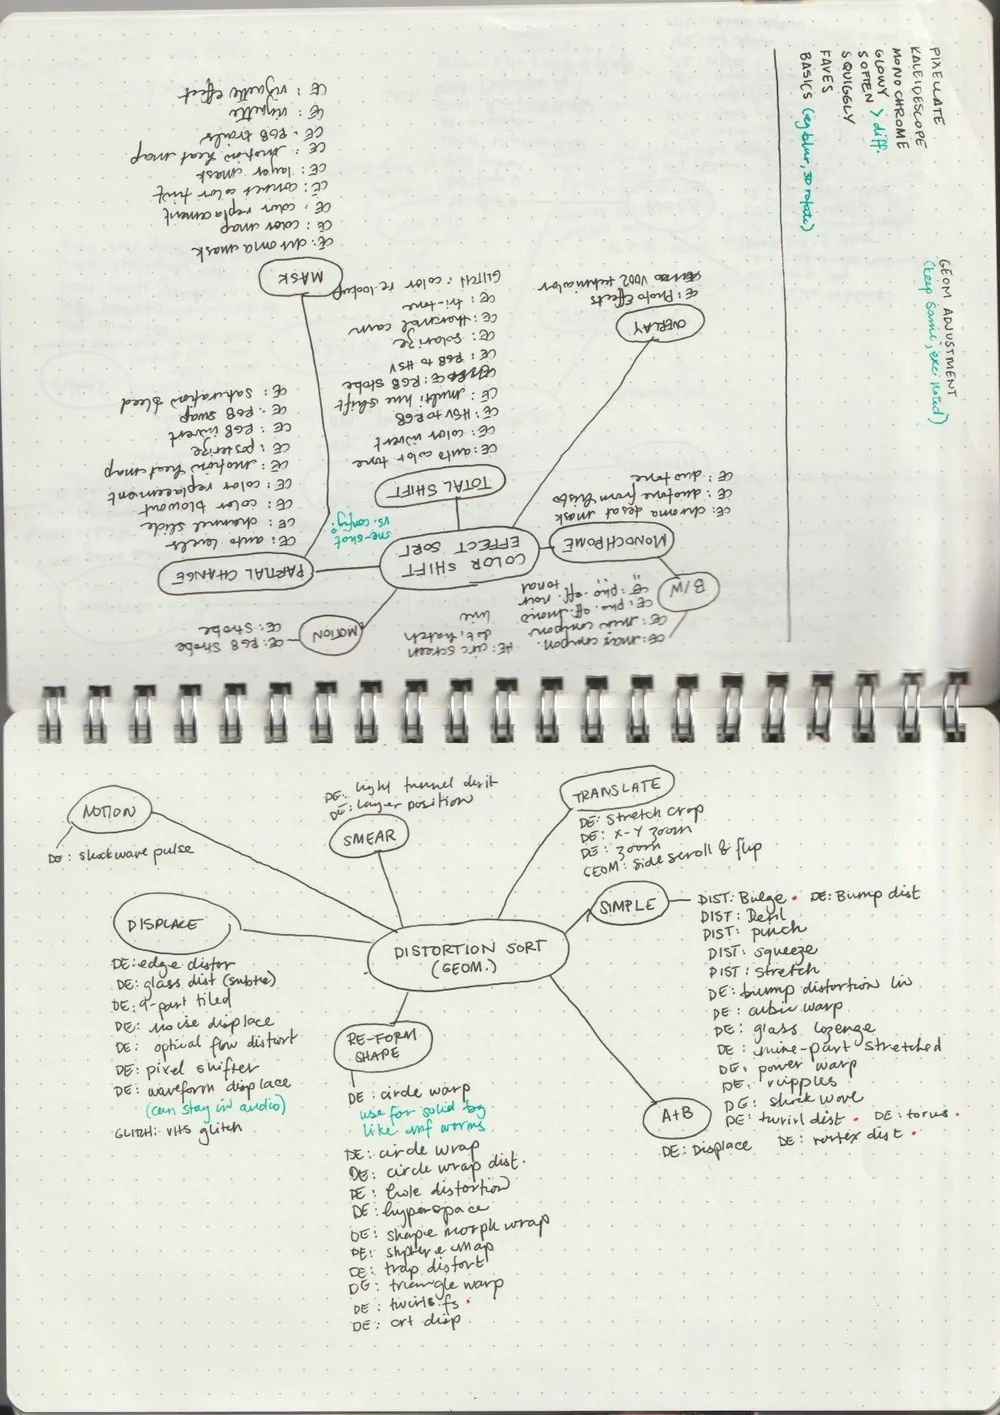 PIXELLATE
KALEIDESCOPE
MONOCHROME
GLOWY
SOFTEN > diff.
SQUIGGLY
FAVES
BASICS (eg blur, 3D rotate)
GEOM ADJUSTMENT
(keep same, exc noted)
COLOR SHIFT
EFFECT SORT
MOTION
CE: RGB Strobe
CE: Strobe
PARTIAL CHANGE
CE: auto levels
CE: channel slide
CE: color blowout
CE: color replacement
CE: motion heat map
CE: posterize
CE: RGB invert
CE: RGB swap
CE: saturation bleed
one-shot
vs. config?
TOTAL SHIFT
CE: auto color tone
CE: color invert
CE: HSV to RGB
CE: multi hue shift
CE: RGB strobe
CE: RGB to HSV
CE: solarize
CE: thermal cam
CE: tri-tone
GLITCH: color re-lookup
MASK
CE: chroma mask
CE: color map
CE: color replacement
CE: correct color tint
CE: layer mask
CE: motion heat map
CE: RGB trails
CE: vignette
CE: vignette effect
OVERLAY
CE: Photo Effects
V002 technicolor
MONOCHROME
CE: chroma desat mask
CE: duotone from histo
CE: duo tone
B/W
CE: max compon.
CE: min compon
CE: pho. eff. mono
CE: pho. eff. noir
tonal
HE: circ screen
dot, hatch
line
MOTION
DE: shockwave pulse
SMEAR
DE: light tunnel dist
DE: layer position
TRANSLATE
DE: Stretch crop
DE: X-Y zoom
DE: zoom
GEOM: Side scroll & flip
SIMPLE
DIST: Bulge • DE: Bump dist
DIST: Defil
DIST: pinch
DIST: squeeze
DIST: stretch
DE: bump distortion lin
DE: cubic warp
DE: glass lozenge
DE: nine-part stretched
DE: power warp
DE: ripples
DE: shock wave
DE: twirl dist • DE: torus •
DE: vortex dist •
DISPLACE
DE: edge distor
DE: glass dist (subtle)
DE: 9-part tiled
DE: noise displace
DE: optical flow distort
DE: pixel shifter
DE: waveform displace
(can stay in audio)
GLITCH: VHS glitch
DISTORTION SORT
(GEOM.)
RE-FORM
SHAPE
DE: circle warp
use for solid bg
like mf worms
DE: circle wrap
DE: circle wrap dist.
DE: hole distortion
DE: hyperspace
DE: shape morph wrap
DE: sphere map
DE: trap distort
DE: triangle warp
DE: twirls.fs •
DE: crt disp
A+B
DE: Displace